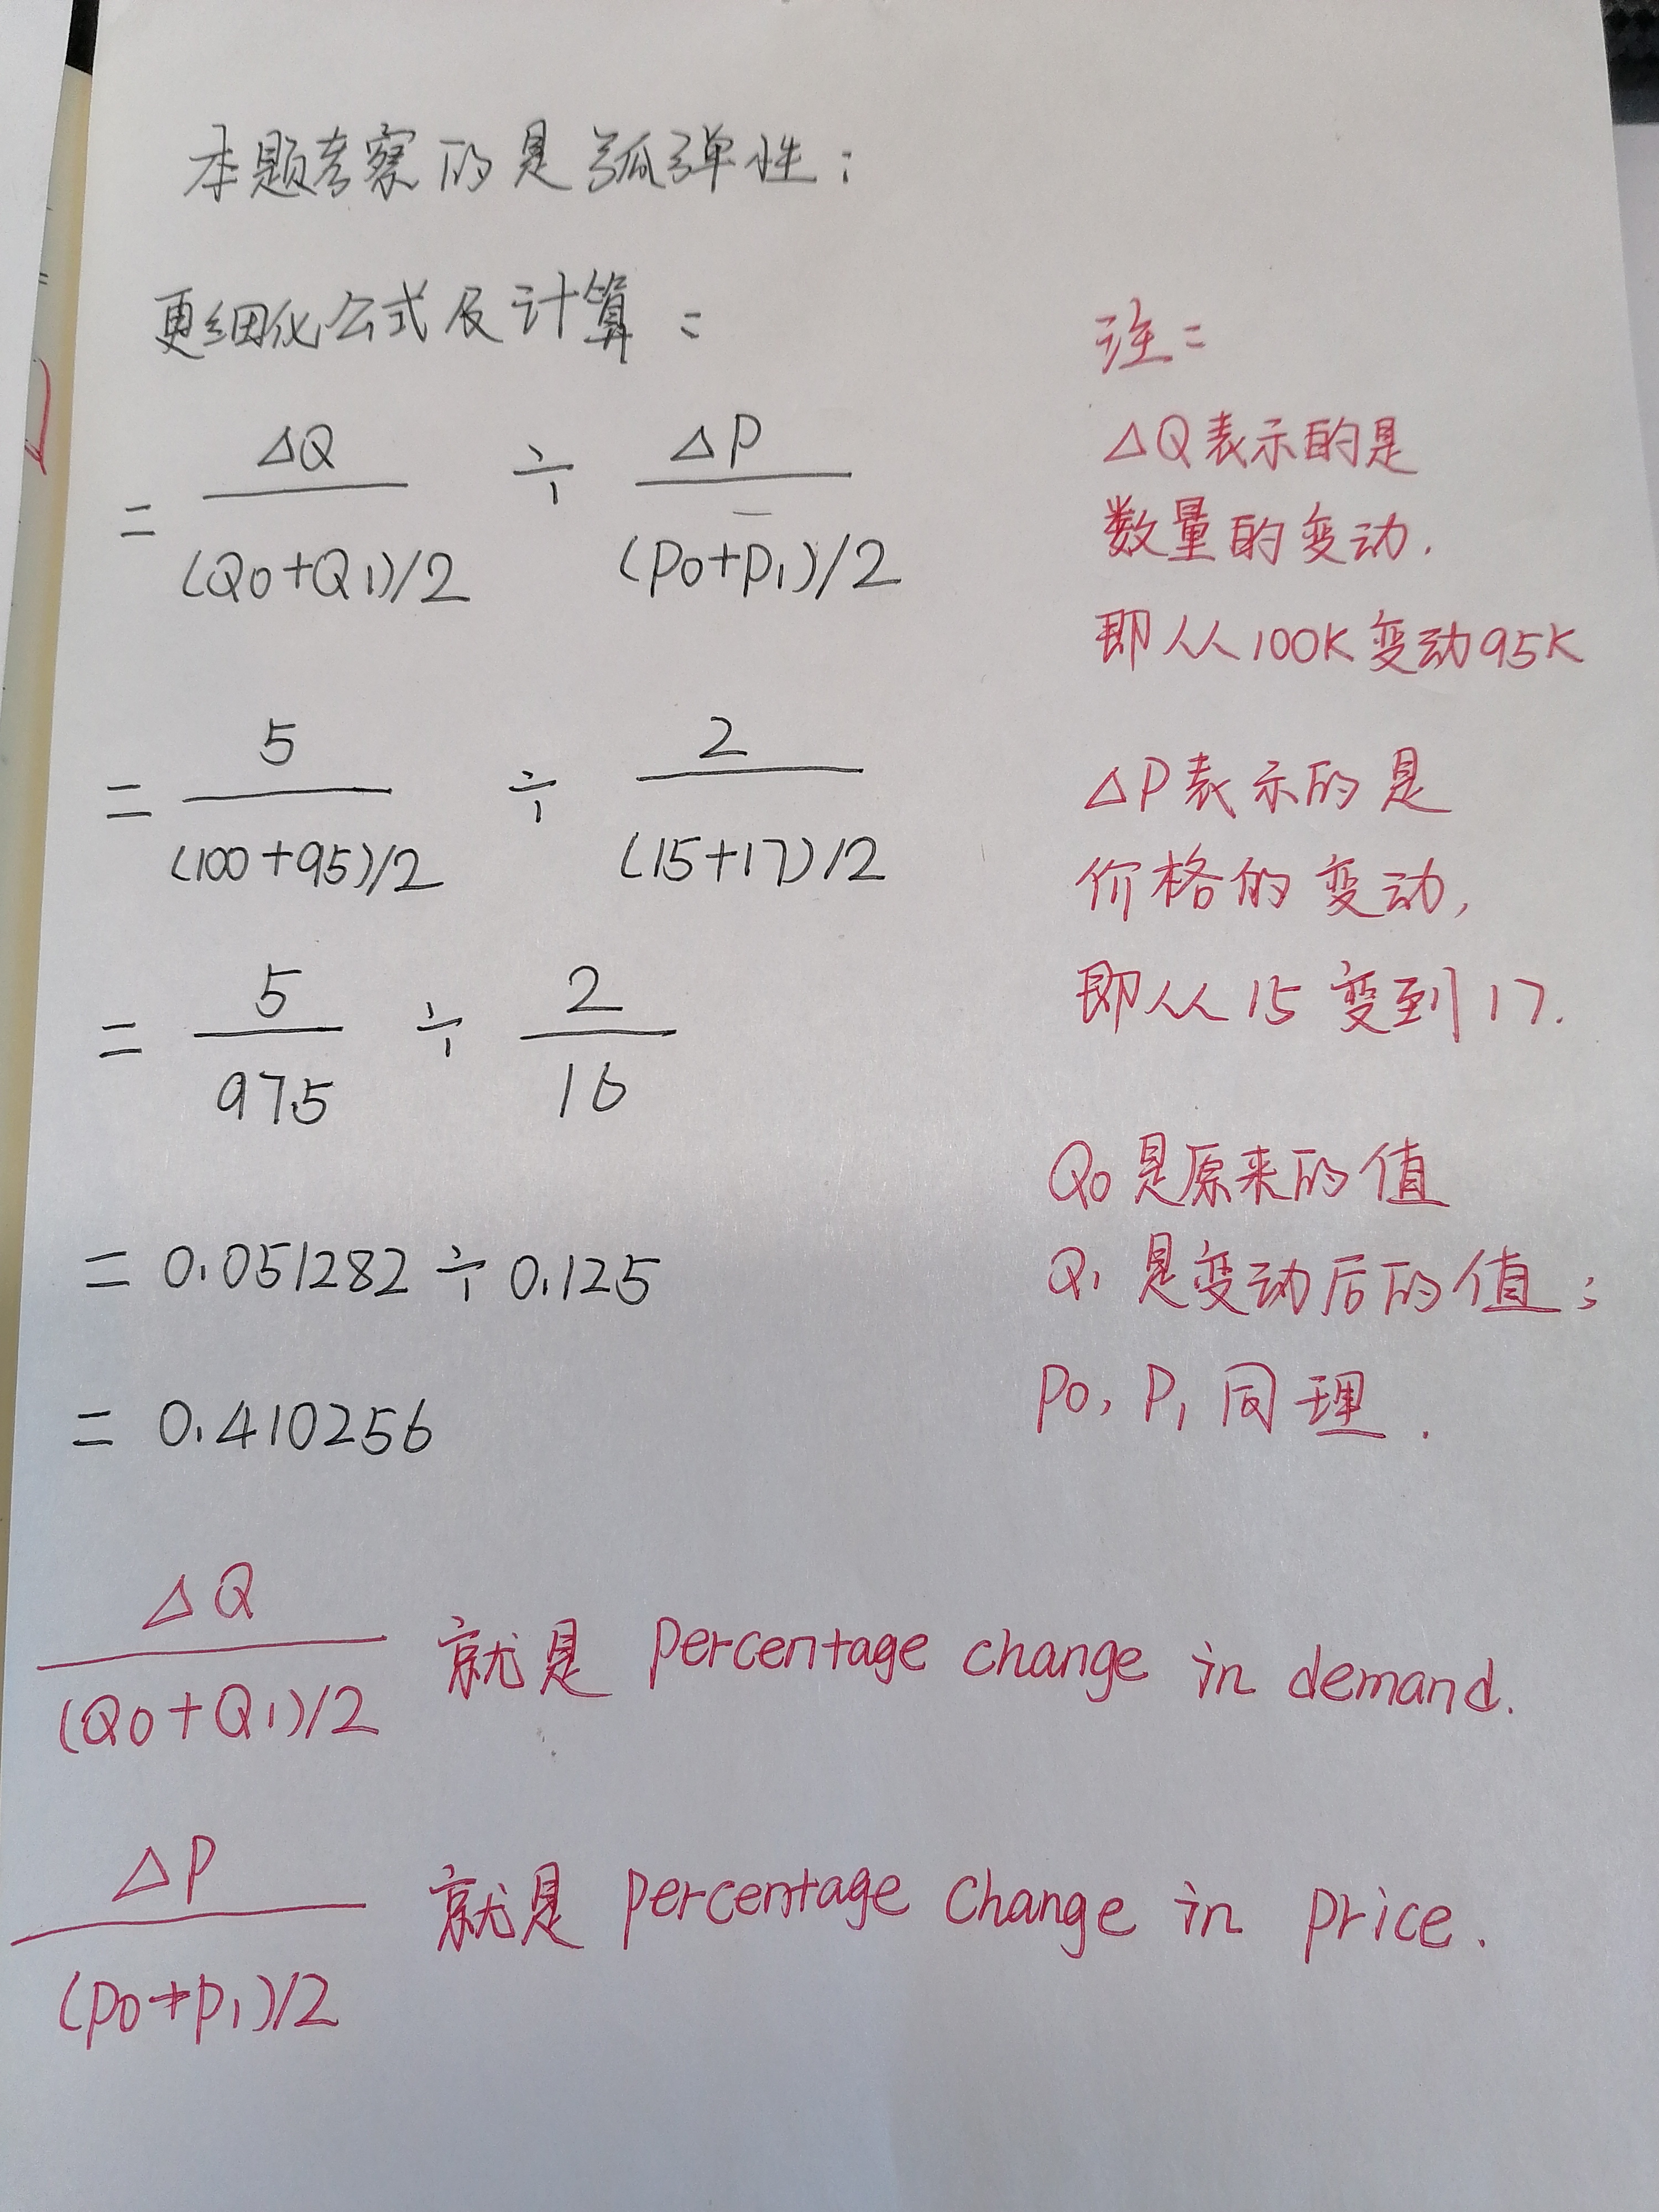 本题考察的是弧弹性：
更细化公式及计算：
= ΔQ/(Q0+Q1)/2 ÷ ΔP/(P0+P1)/2
= 5/(100+95)/2 ÷ 2/(15+17)/2
= 5/97.5 ÷ 2/16
= 0.051282 ÷ 0.125
= 0.410256
注：
ΔQ表示的是
数量的变动.
即从100K变动95K
ΔP表示的是
价格的变动,
即从15变到17.
Q0是原来的值
Q1是变动后的值;
P0, P1同理.
ΔQ/(Q0+Q1)/2 就是 percentage change in demand.
ΔP/(P0+P1)/2 就是 percentage change in price.